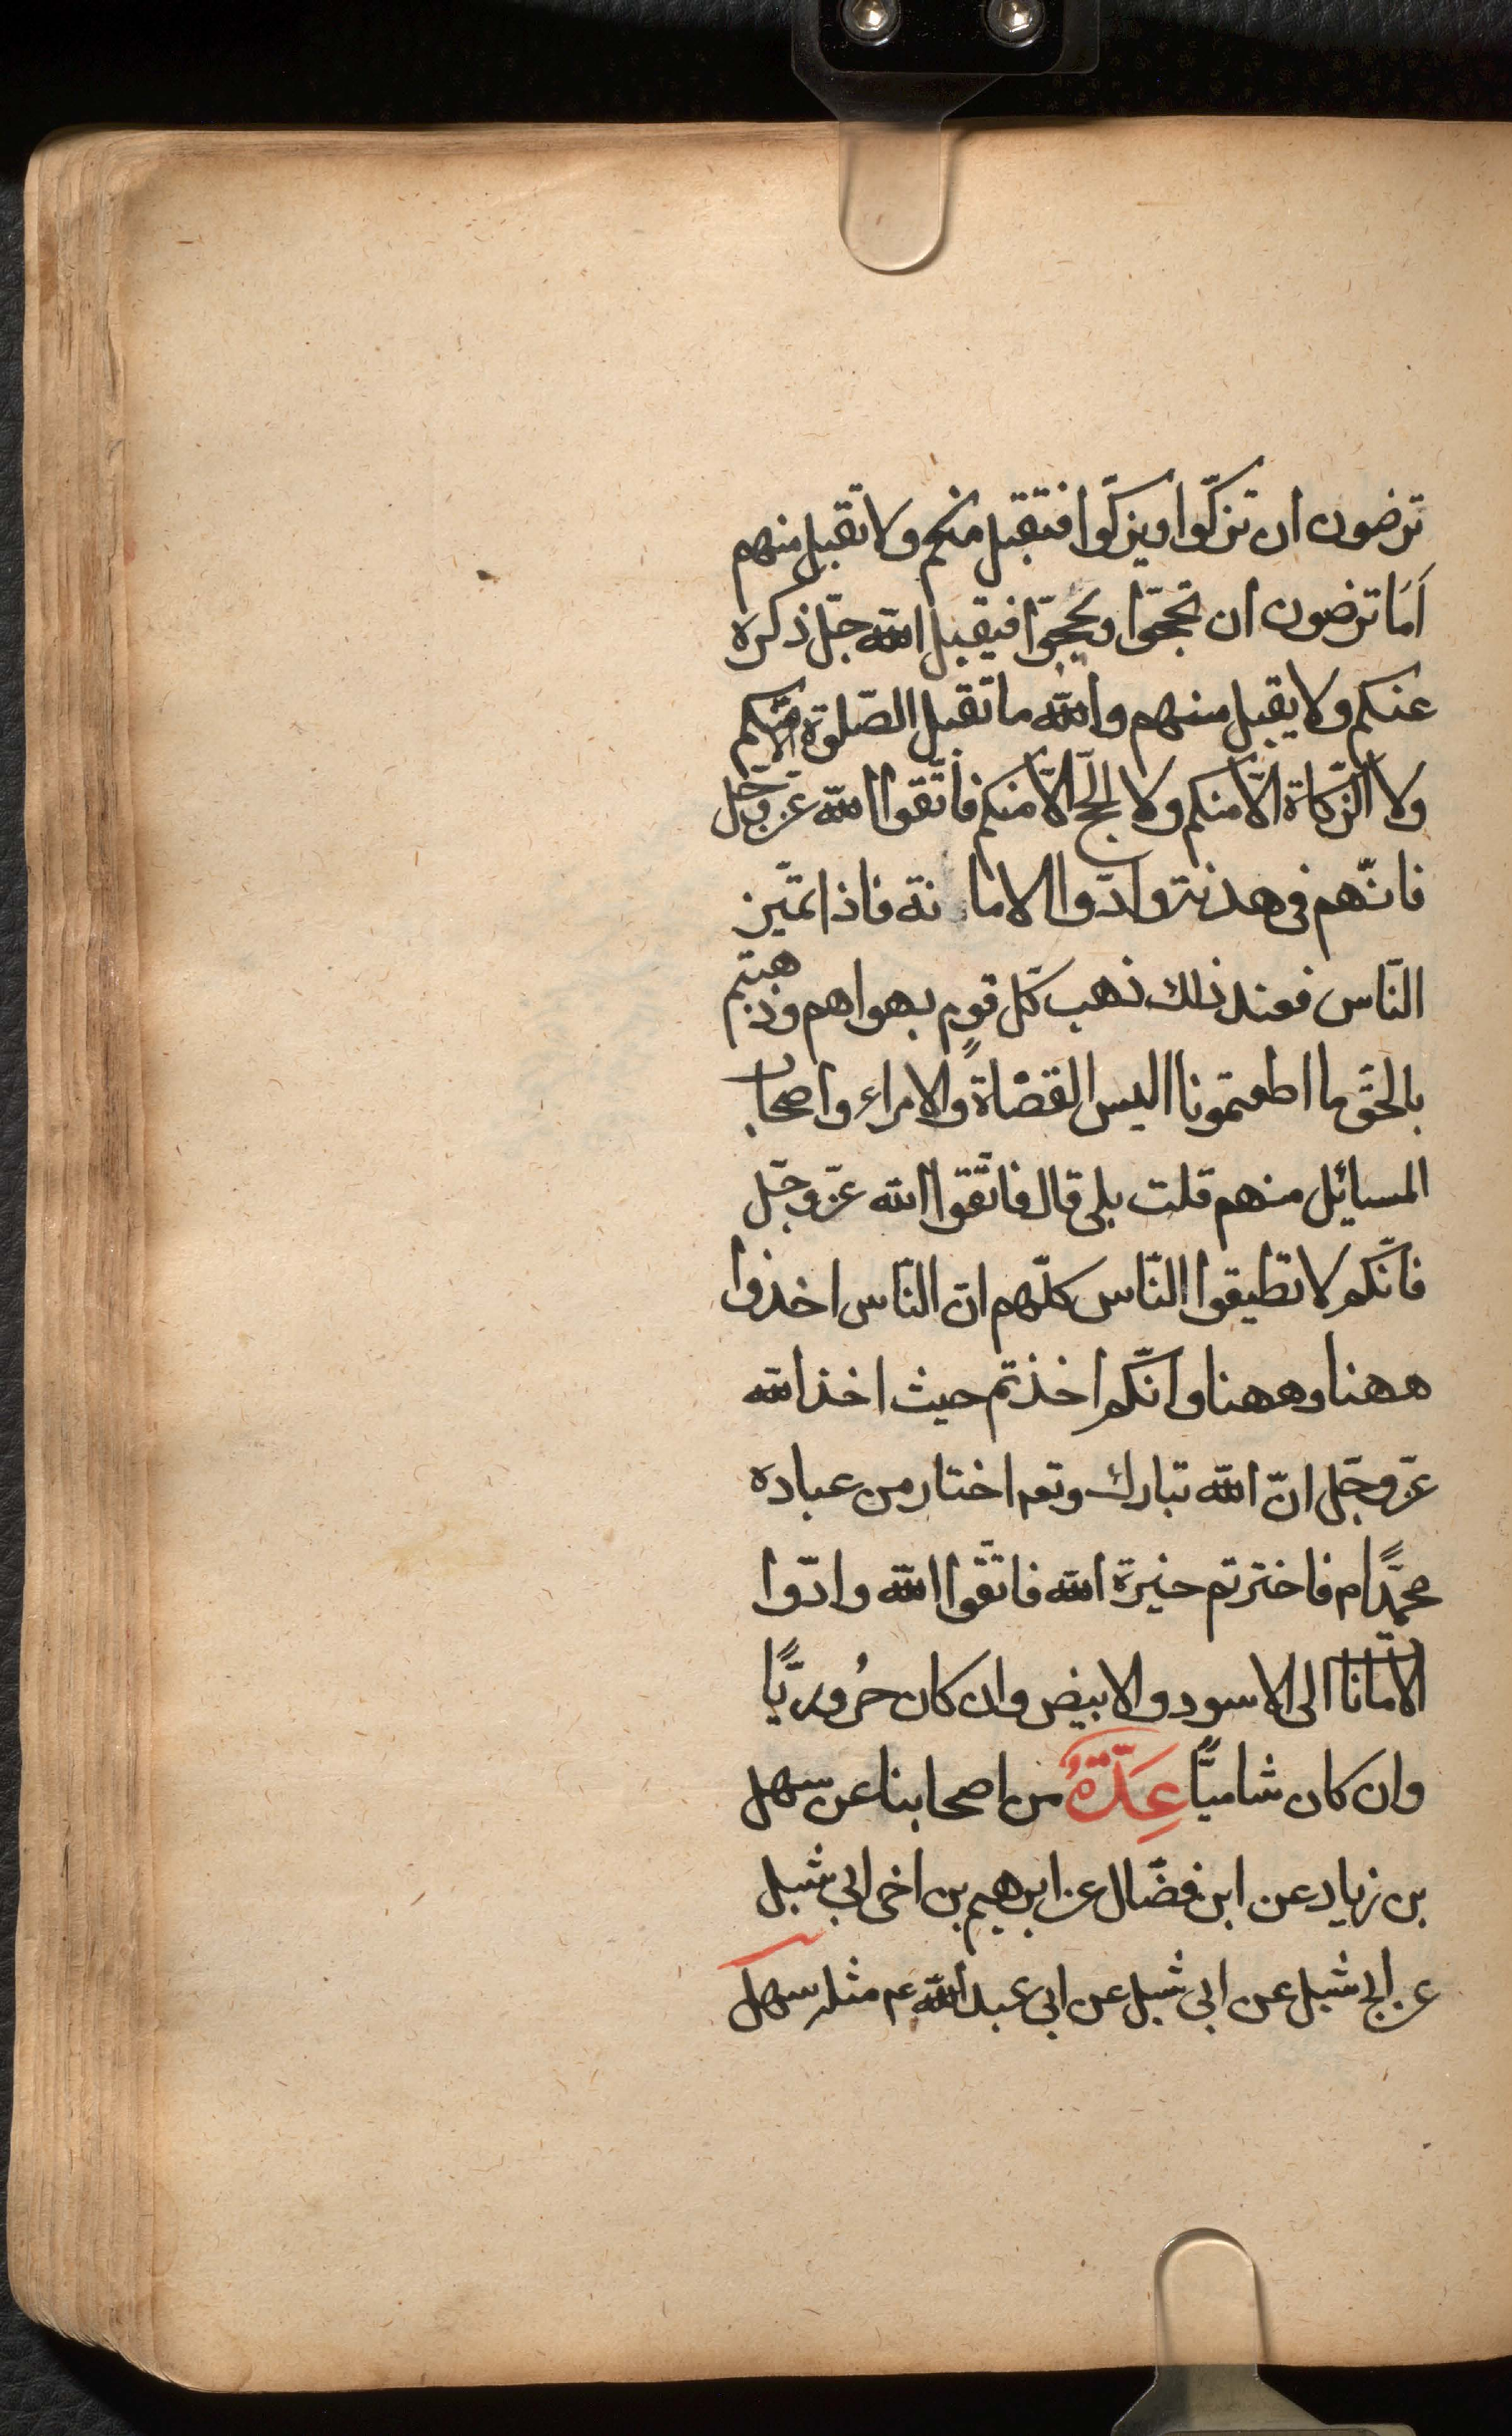 ترضون ان تزكّوا ويزكّوا فتقبل منكم ولا تقبل منهم
اَمَا ترضون ان تحجّوا ويحجّوا فيقبل اللّه جلّ ذكره
عنكم ولا يقبل منهم واللّه ما تقبل الصّلوة الّا منكم
ولا الزّكاة الّا منكم ولا الحجّ الّا منكم فاتّقوا اللّه عزّ وجلّ
فانّهم فى هدنة وادّوا الاما نة فاذا تميّز
النّاس فعند ذلك ذهب كلّ قومٍ بهواهم وذهبتم
بالحقّ ما اطعتمونا اليس القضاة والامراء واصحاب
المسائل منهم قلت بلى قال فاتّقوا اللّه عزّ وجلّ
فانّكم لا تطيقوا النّاس كلّهم انّ النّاس اخذوا
ههنا وههنا وانّكم اخذتم حيث اخذ اللّه
عزّ وجلّ انّ اللّه تبارك وتعم اختار من عباده
محمّدًا م فاخترتم خيرة اللّه فاتّقوا اللّه وادّوا
الاماناتا الى الاسود والابيض وان كان حُروريًّا
وان كان شاميًّا عِدّةٌ من اصحابنا عن سهل
بن زياد عن ابن فضّال عن ابرهيم بن اخى ابى شبل
عن ابى شبل عن ابى شبل عن ابى عبد اللّه عم مثله سهل